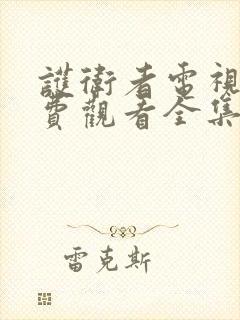 護衛者電視
費觀看全集
雷克斯